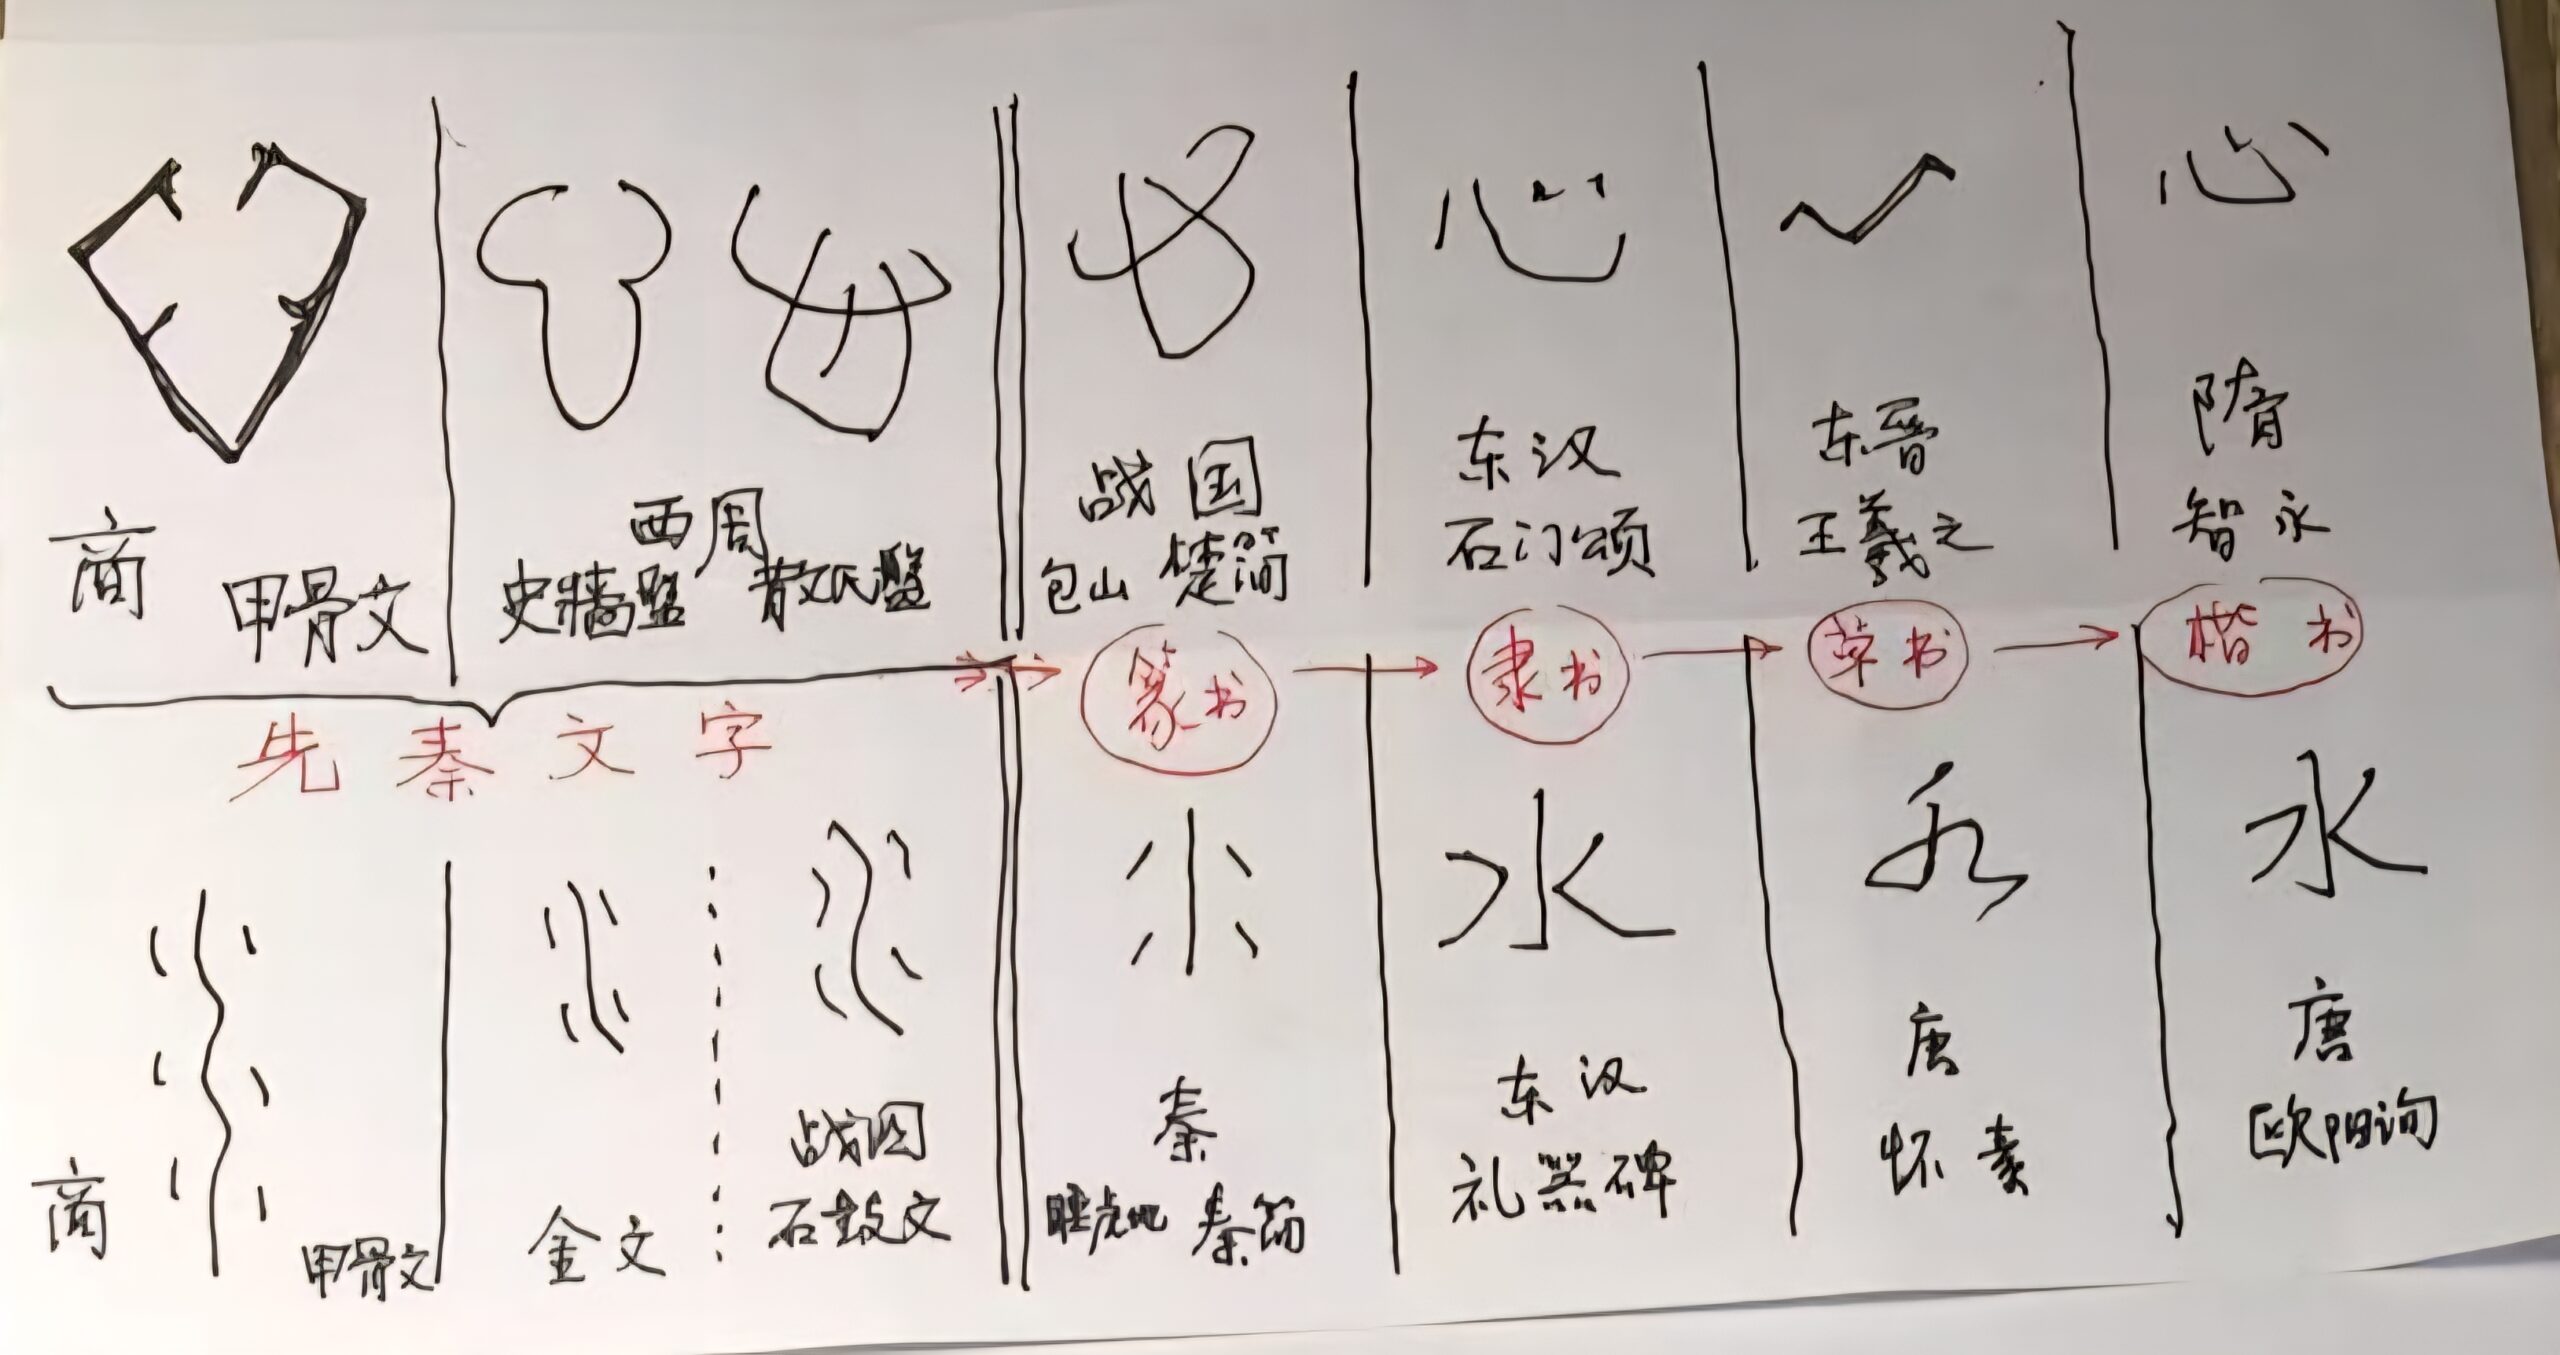 心 心
商
甲骨文
西周
史牆盤 散氏盤
战国
包山 楚简
东汉
石门颂
东晋
王羲之
隋
智永
先秦文字 → 篆书 → 隶书 → 草书 → 楷书
水 水 水
商
甲骨文
金文
战国
石鼓文
秦
睡虎地 秦简
东汉
礼器碑
唐
怀素
唐
欧阳询